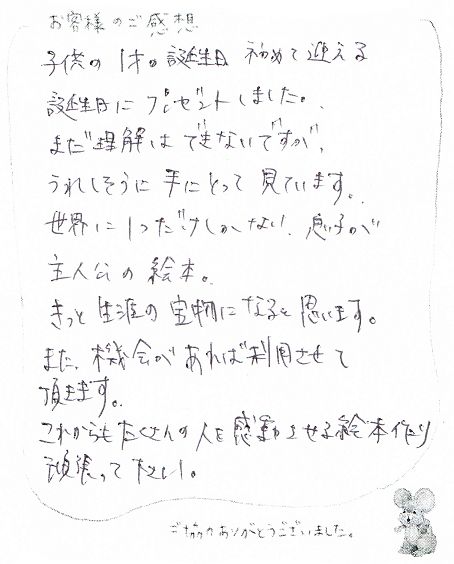 お客様のご感想
子供の1才の誕生日 初めて迎える
誕生日にプレゼントしました。
まだ理解はできないですが、
うれしそうに手にとって見ています。
世界に1つだけしかない、息子が
主人公の絵本。
きっと生涯の宝物になると思います。
また、機会があれば利用させて
頂きます。
これからもたくさんの人を感動させる絵本作り
頑張って下さい。
ご協力ありがとうございました。